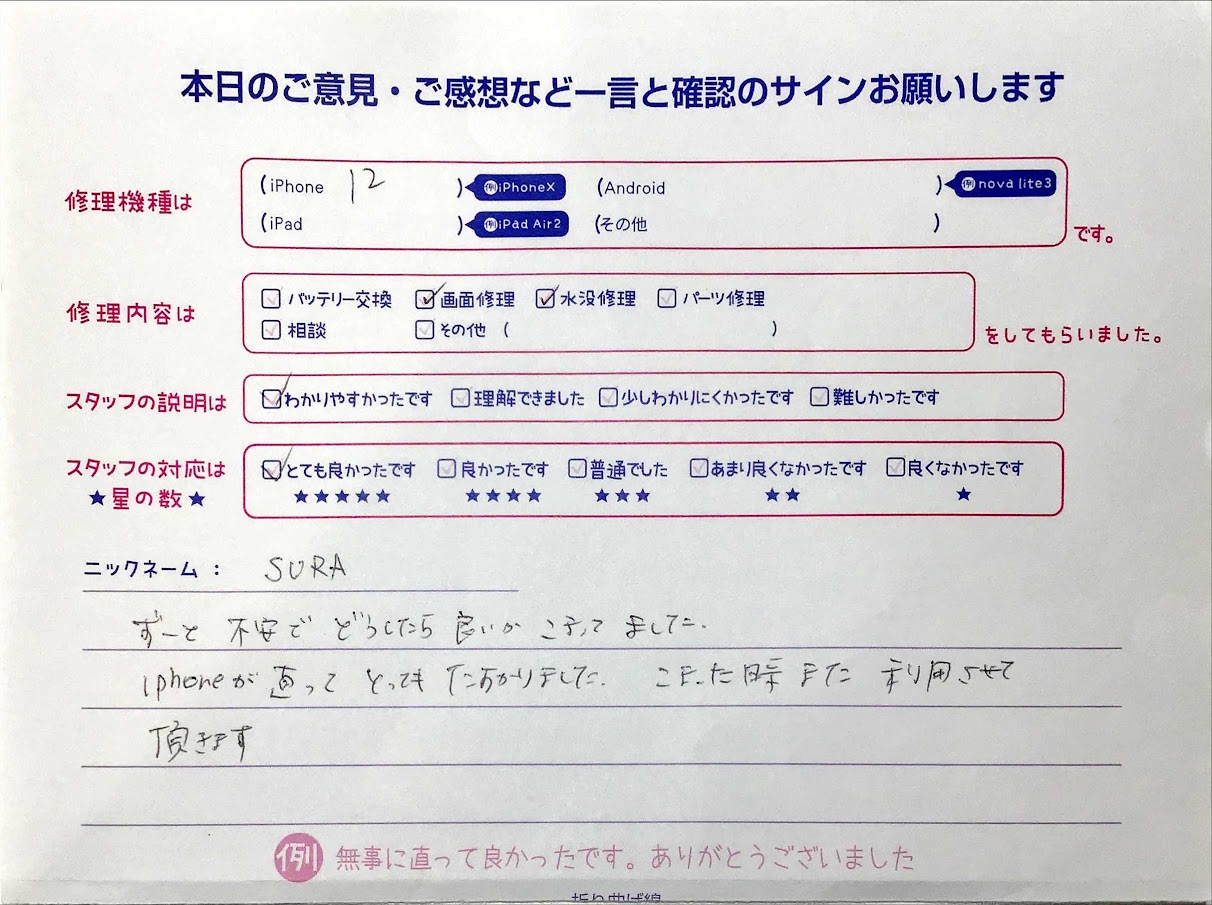 本日のご意見・ご感想など一言と確認のサインお願いします
修理機種は
(iPhone 12 ) 例iPhoneX (Android ) 例nova lite3
(iPad ) 例iPad Air2 (その他 ) です。
修理内容は
バッテリー交換 画面修理 水没修理 パーツ修理
相談 その他 ( ) をしてもらいました。
スタッフの説明は わかりやすかったです 理解できました 少しわかりにくかったです 難しかったです
スタッフの対応は とても良かったです 良かったです 普通でした あまり良くなかったです 良くなかったです
★星の数★ ★★★★★ ★★★★ ★★★ ★★ ★
ニックネーム: SURA
ずーと 不安で どうしたら 良いか こまって ました.
iphoneが 直って とっても たすかりました. こまった時 また 利用させて
頂きます
例 無事に直って良かったです。ありがとうございました
折り曲げ線